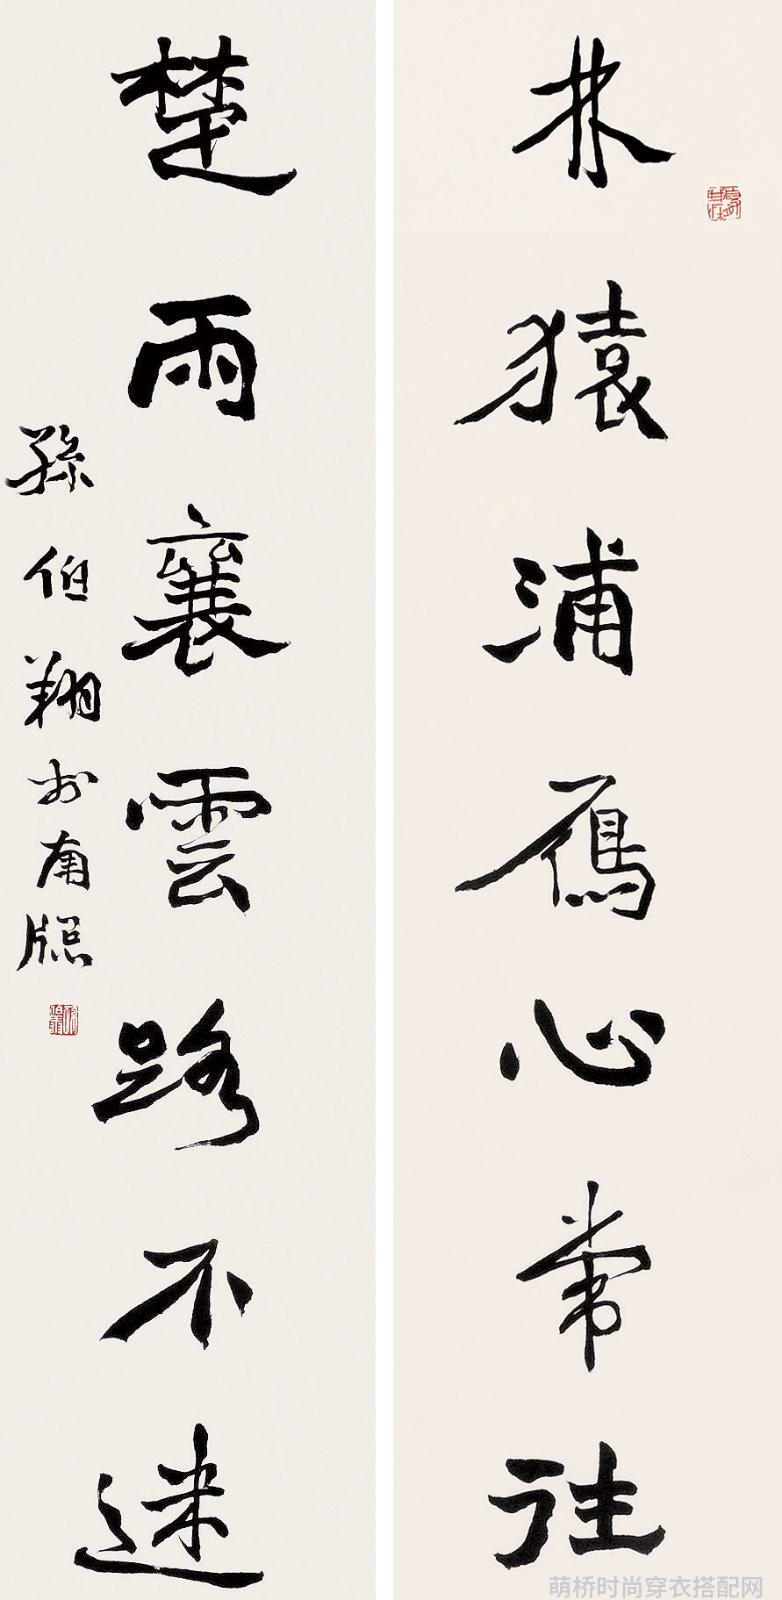 林猿浦鴈心常往
楚雨襄雲路不迷
孫伯翔於南牕
萌桥时尚穿衣搭配网